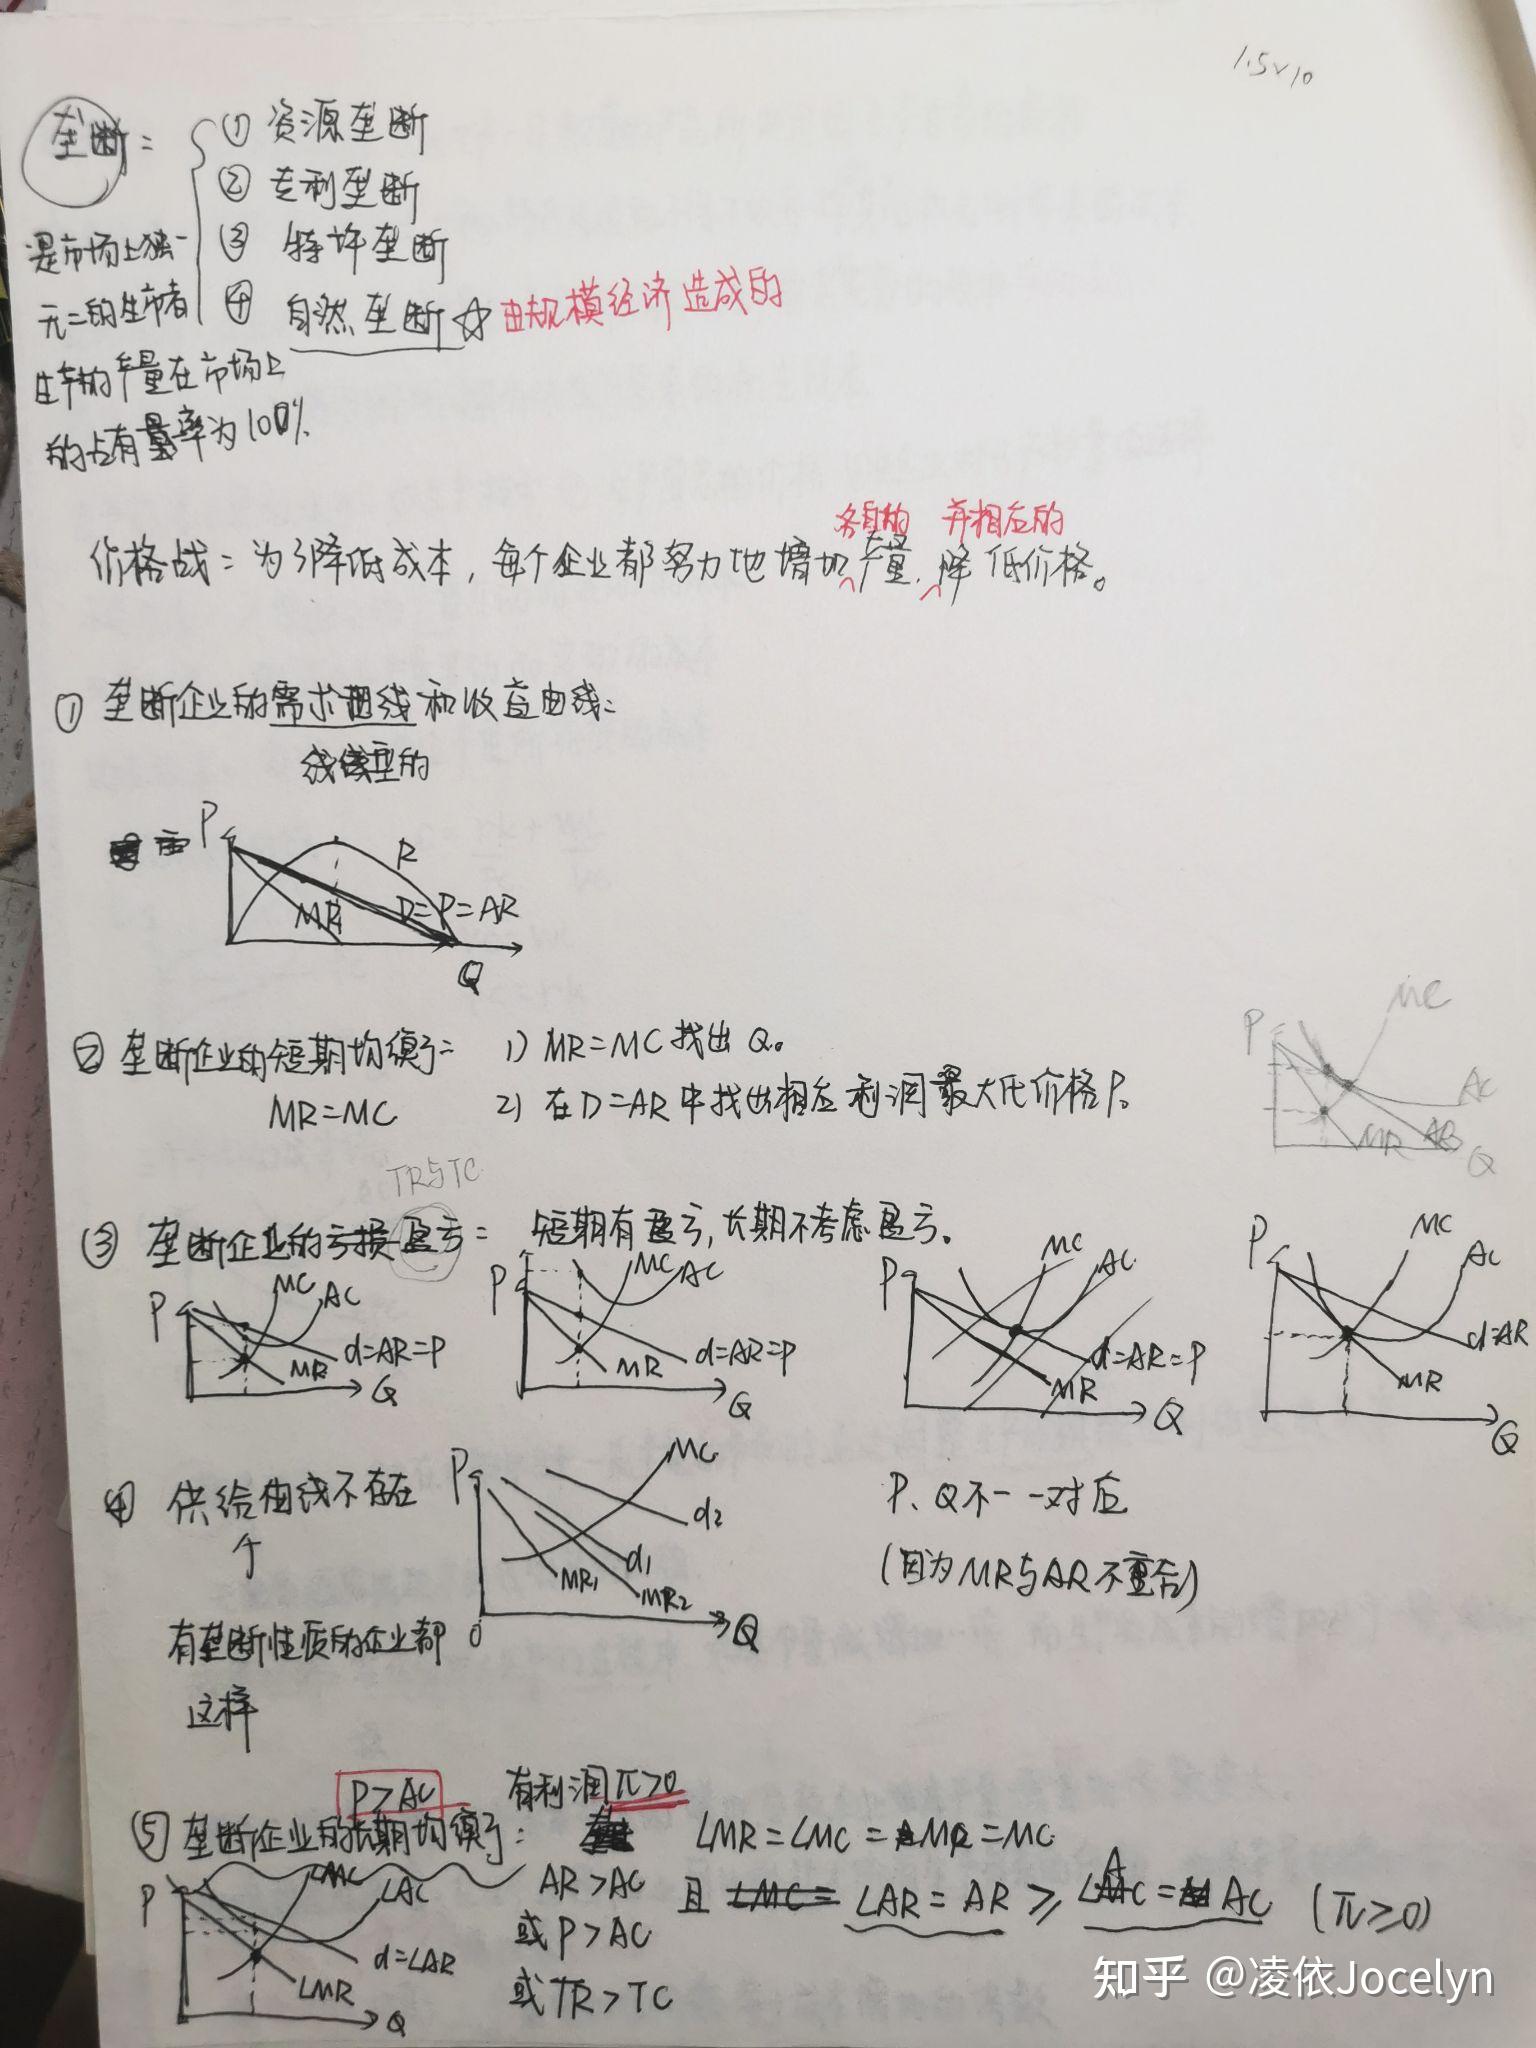 1.5×10
垄断：
① 资源垄断
② 专利垄断
③ 特许垄断
④ 自然垄断☆ 由规模经济造成的
是市场上独一
无二的生产者
生产的产量在市场上
的占有率为100%.
各自的 并相应的
价格战：为了降低成本，每个企业都努力地增加产量，降低价格。
① 垄断企业的需求曲线和收益曲线：
线型的
P
R
MR
D=P=AR
Q
② 垄断企业的短期均衡：
MR=MC
1) MR=MC 找出 Q。
2) 在D=AR中找出相应利润最大化价格P。
P
MC
AC
MR
AR
Q
TR与TC
③ 垄断企业的亏损盈亏： 短期有盈亏，长期不考虑盈亏。
P
MC
AC
d=AR=P
MR
Q
P
MC
AC
d=AR=P
MR
Q
P
MC
AC
d=AR=P
MR
Q
P
MC
AC
d=AR
MR
Q
④ 供给曲线不存在
个
有垄断性质的企业都
这样
P
MC
d2
d1
MR1
MR2
0
Q
P、Q不一一对应
(因为MR与AR不重合)
P>AC 有利润π>0
⑤ 垄断企业的长期均衡： LMR=LMC=MR=MC
AR>AC 且 LMC= LAR=AR≥LAC=AC (π≥0)
或P>AC
或TR>TC
P
LMC
LAC
d=LAR
LMR
Q
知乎 @凌依Jocelyn